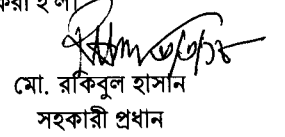 মো. রকিবুল হাসান
সহকারী প্রধান